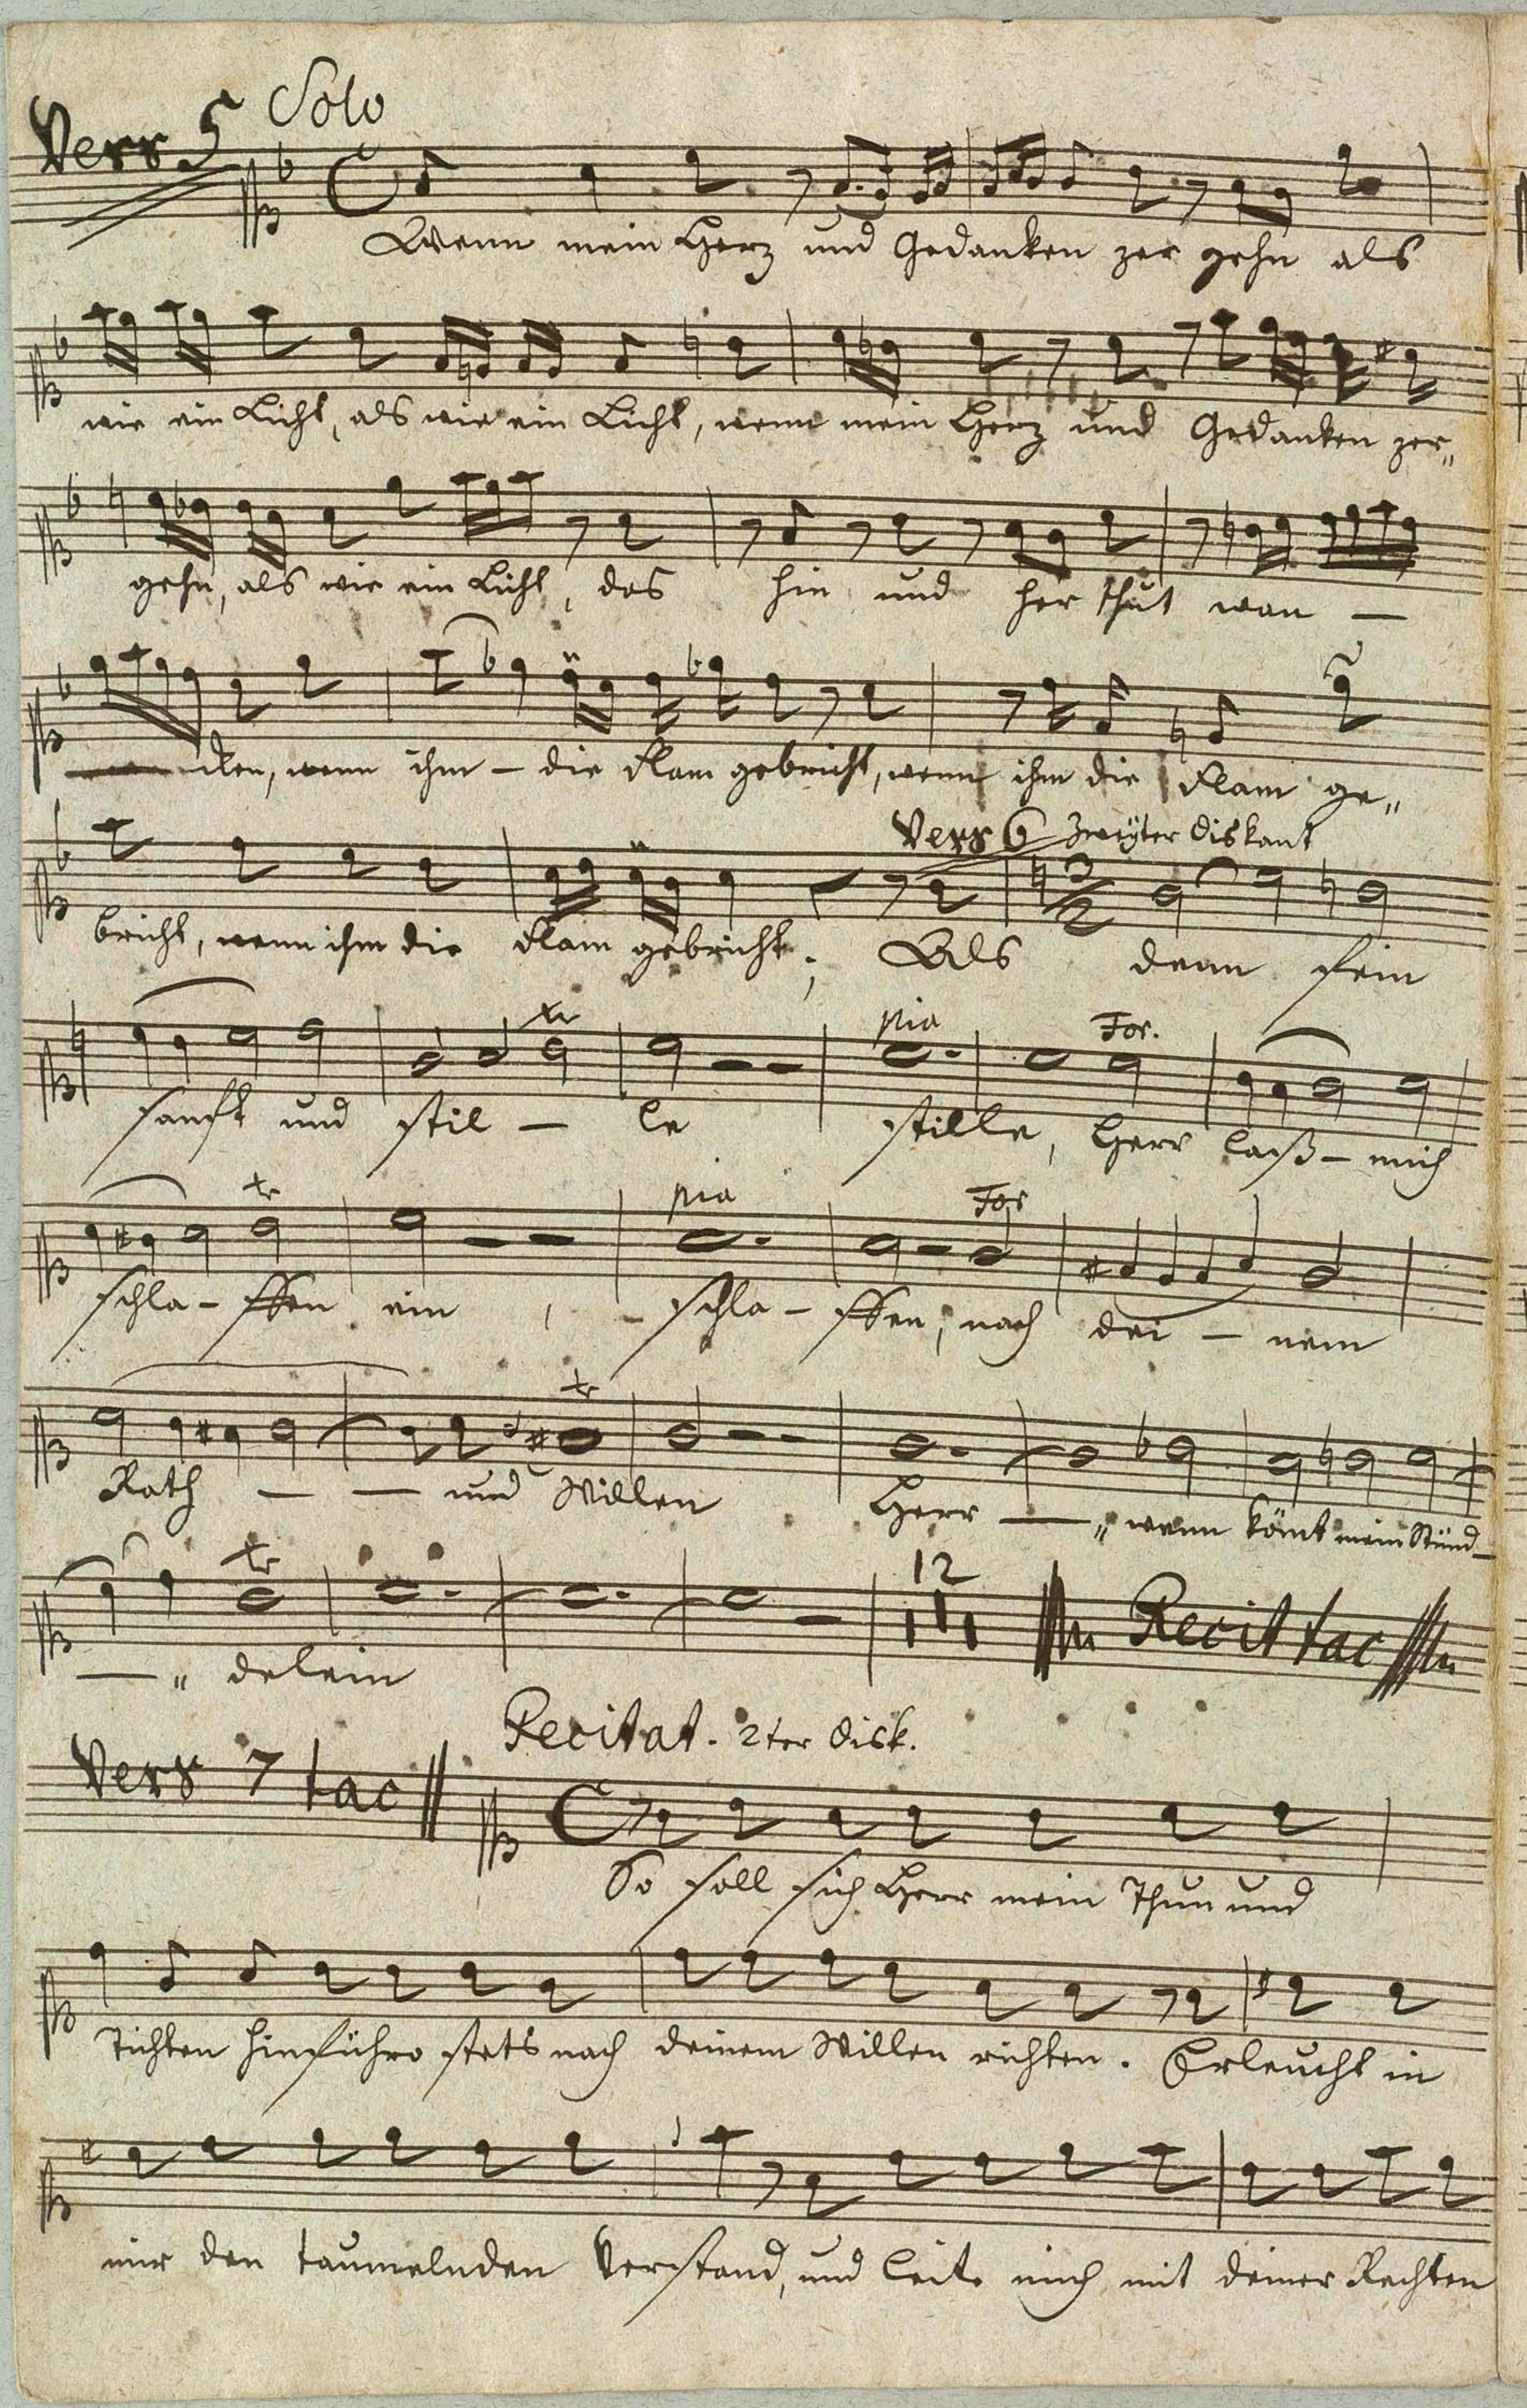 Vers 5 Solo
Wenn mein Herz und Gedanken zer gehn als
wie ein Licht, als wie ein Licht, wenn mein Herz und Gedanken zer„
gehn, als wie ein Licht, das hin und her thut wan —
cken, wenn ihm — die Flam gebricht, wenn ihm die Flam ge„
Vers 6 Zweyter Diskant
bricht, wenn ihm die Flam gebricht; Als denn fein
tr pia For.
sanft und stil — le stille, Herr laß — mich
tr pia For
schla — ffen ein, schla — ffen, nach dei — nem
tr
Rath — — und Willen Herr — „ wenn kömt mein Stünd —
tr 12 Recit tac
— „ delein
Recitat. 2ter Disk.
Vers 7 tac
So soll sich Herr mein Thun und
Tichten hinführo stets nach deinem Willen richten. Erleucht in
mir den taumelnden Verstand, und leite mich mit deiner Rechten